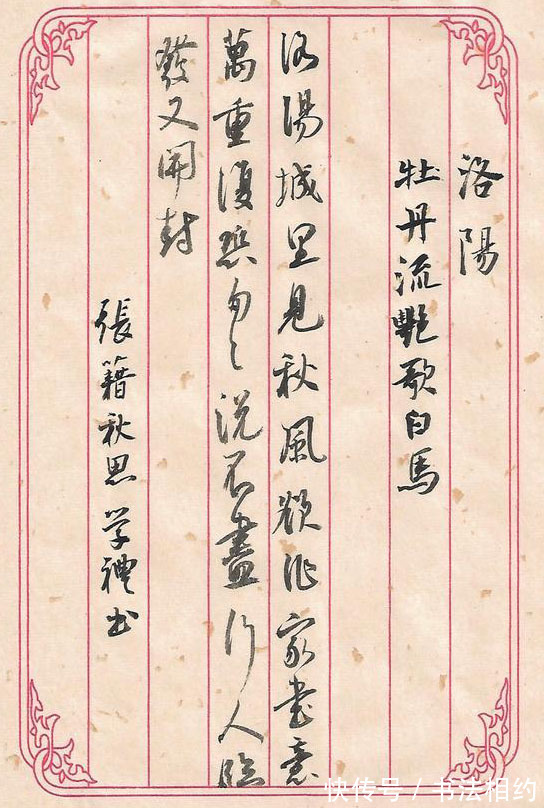 洛陽
牡丹流艷歌白馬
洛陽城里見秋風欲作家書意
萬重復恐匆々説不盡行人臨
發又開封
張籍秋思 学禮书
快传号 / 书法相约